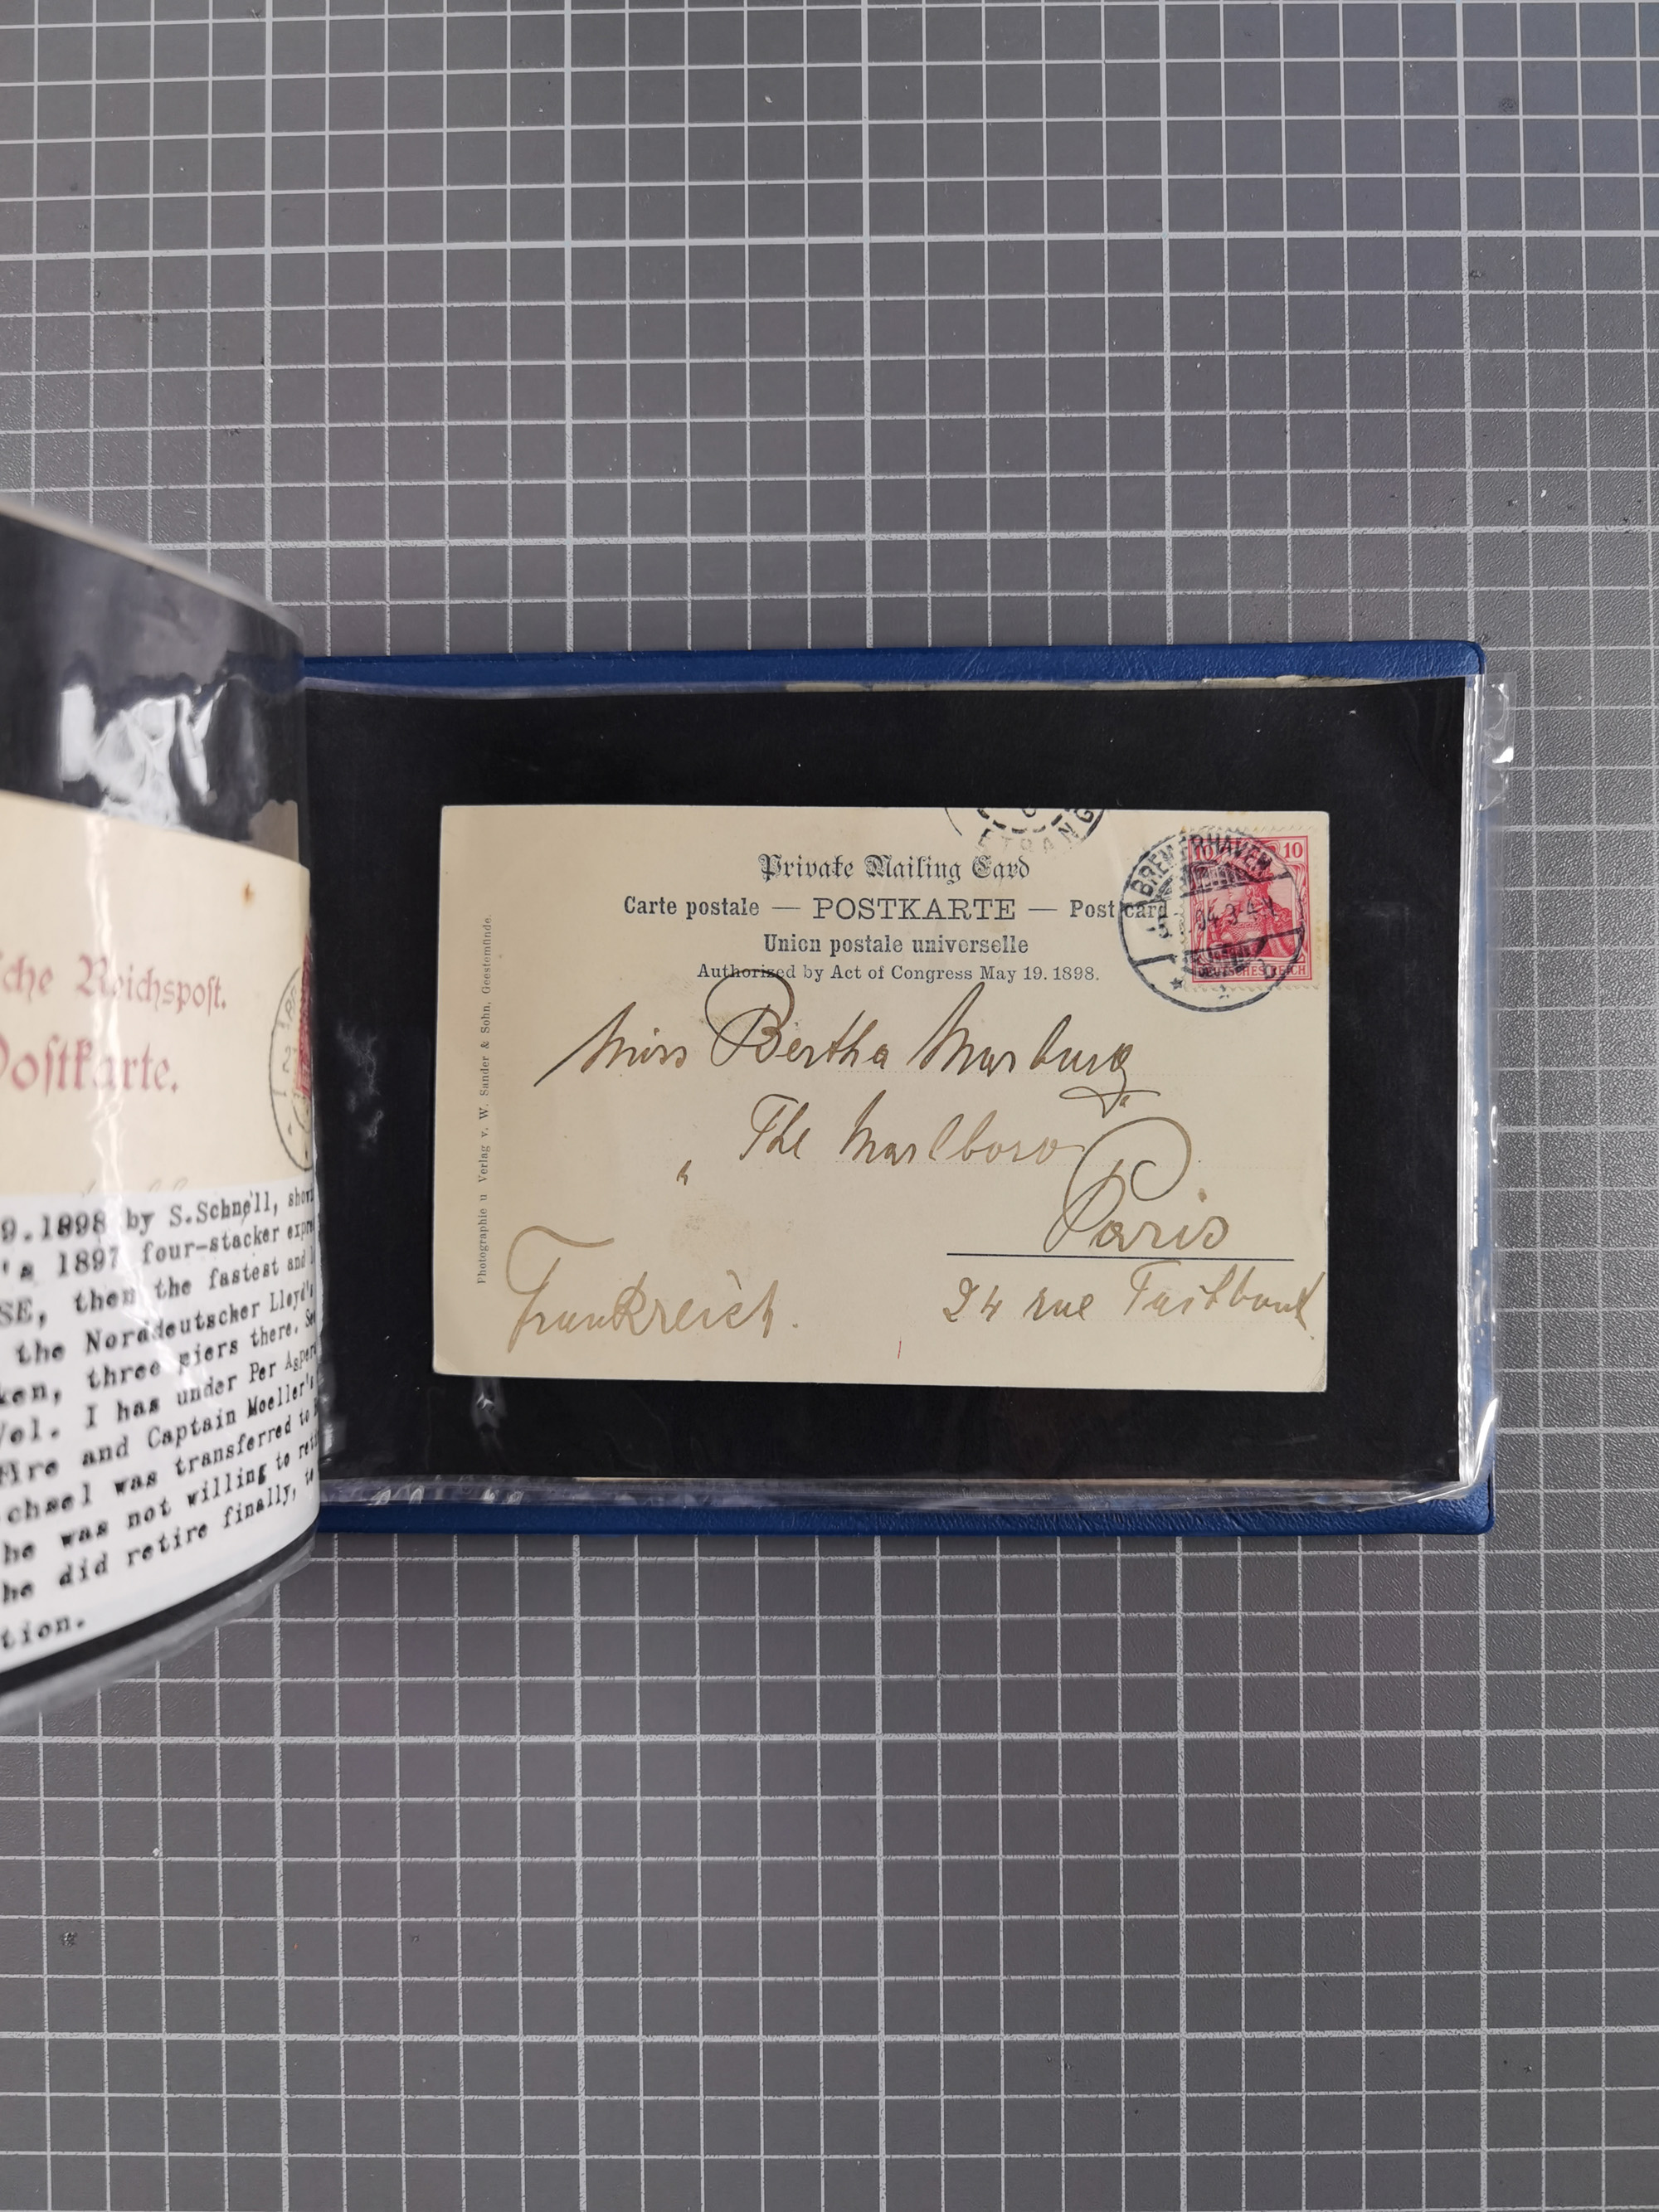 che Reichspost.
Postkarte.
9.1898 by S.Schnell, show
's 1897 four-stacker expre
SE, then the fastest and
the Norddeutscher Lloyd's
ken, three piers there. Se
Vol. I has under Per Asper
Fire and Captain Moeller's
chael was transferred to
he was not willing to reti
he did retire finally, to
tion.
ETRANG
Private Mailing Card
Carte postale — POSTKARTE — Post card
Union postale universelle
Authorized by Act of Congress May 19. 1898.
BREMERHAVEN
04.3-4
10 10
DEUTSCHES REICH
Photographie u Verlag v. W. Sander & Sohn, Geestemünde.
Miss Bertha Marburg
The Marlboro
Paris
24 rue
Frankreich.